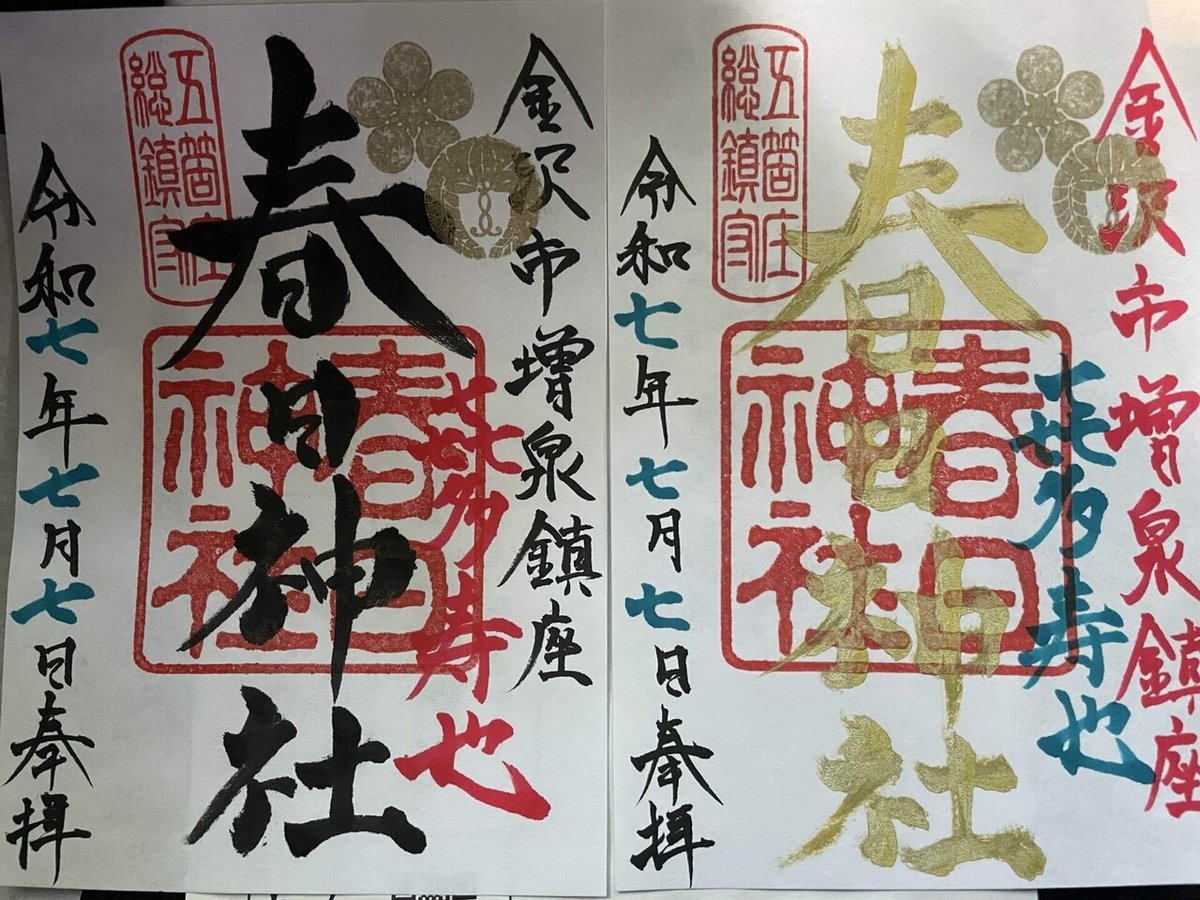 金沢市増泉鎮座
㐂多寿也
春日神社
春日
神社
五箇庄
総鎮守
令和七年七月七日奉拝
金沢市増泉鎮座
㐂多寿也
春日神社
春日
神社
五箇庄
総鎮守
令和七年七月七日奉拝